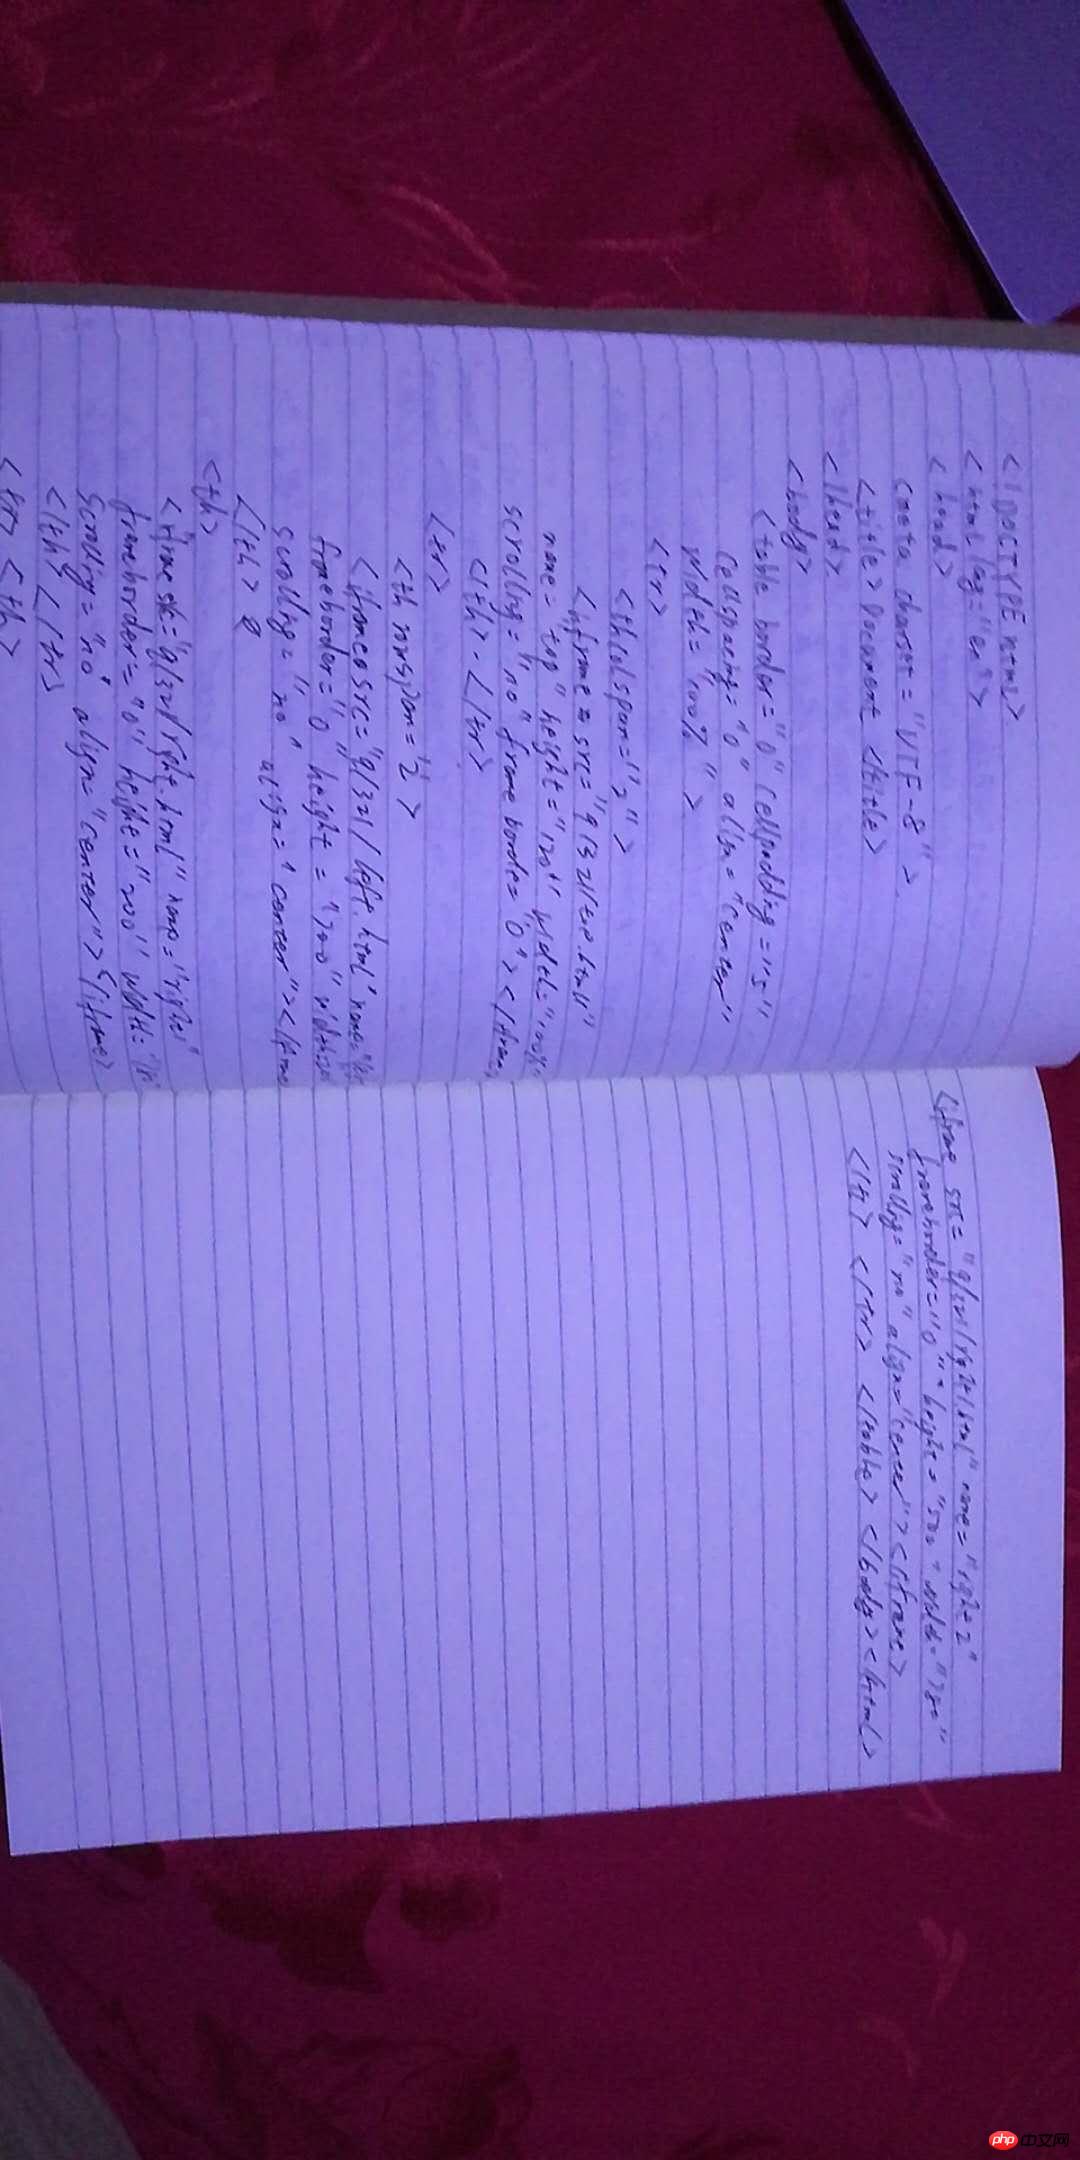 <!DOCTYPE html>
<html lang="en">
<head>
<meta charset="UTF-8">
<title>Document</title>
</head>
<body>
<table border="0" cellpadding="5"
cellspacing="0" align="center"
width="100%">
<tr>
<th colspan="2">
<iframe src="9/321/top.html"
name="top" height="120" width="100%
scrolling="no" frameborde="0"></iframe
</th></tr>
<tr>
<th rowspan="2">
<iframe src="9/321/left.html" name=
frameborder="0 height="700" width=
scrolling="no" align="center"></iframe
</th>
<th>
<iframe src="9/321/right.html" name="right"
frameborder="0" height="200" width=
scrolling="no" align="center"></iframe>
</th></tr>
<tr><th>
<iframe src="9/321/right1.html" name="right2"
frameborder="0" height="500" width="780"
scrolling="no" align="center"></iframe>
</th></tr></table></body></html>
php 中文网